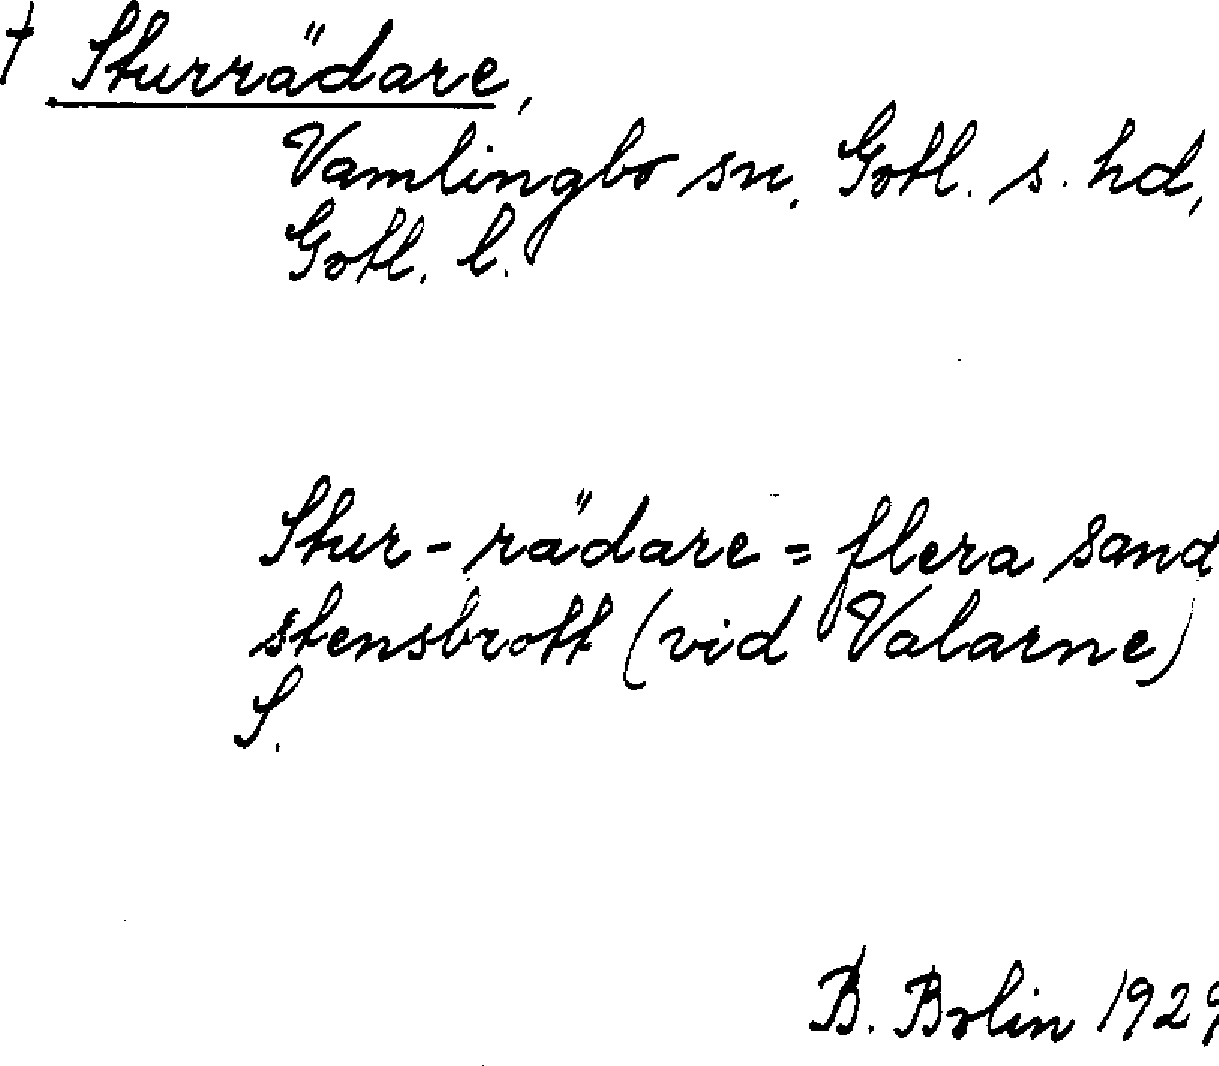 † Sturrädare,
Vamlingbo sn, Gotl. s. hd,
Gotl. l.
Stur-rädare = flera sand
stensbrott (vid Valarne)
S.
B. Bolin 1929